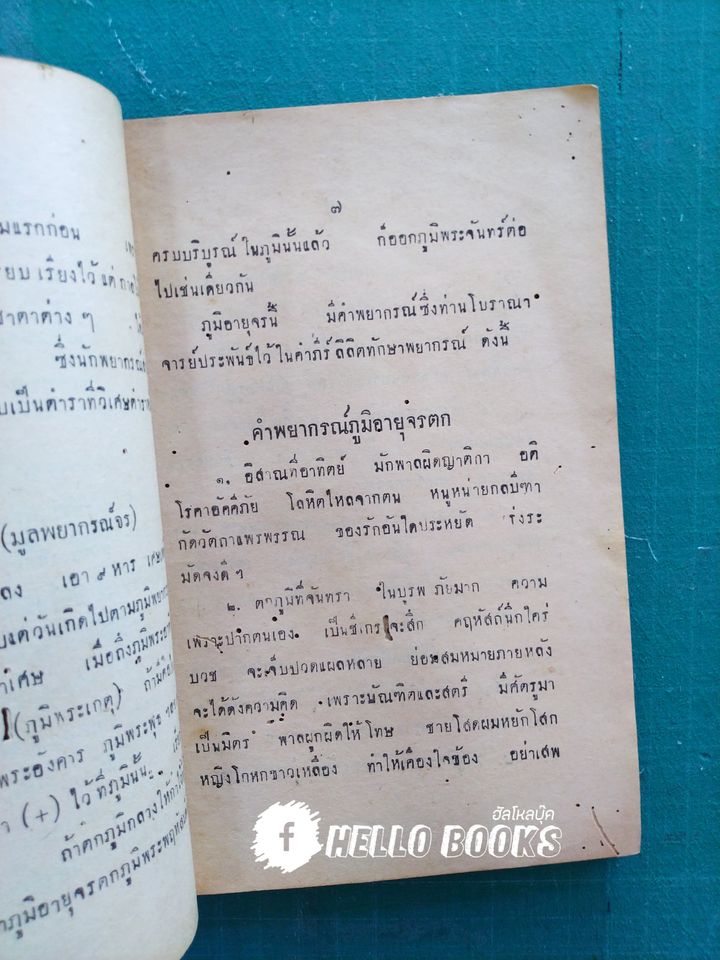 มแรกก่อน
รียบ เรียงไว้ แต่
ชาตาต่าง ๆ
ซึ่งนักพยากรณ์
บเป็นตำราที่วิเศษ
(มูลพยากรณ์จร)
ลง เอา ๙ หาร เศษ
บแต่วันเกิดไปตามภูมิพยากร
าเศษ เมื่อถึงภูมิพระ
(ภูมิพระเกตุ)
พระอังคาร ภูมิพระพุธ
า (+) ไว้ ที่ภูมินั้น
ถ้าตกภูมิกลางให้
าภูมิอายุจรตกภูมิพระพฤหัส
๗
ครบบริบูรณ์ ในภูมินั้นแล้ว ก็ออกภูมิพระจันทร์ต่อ
ไปเช่นเดียวกัน
ภูมิอายุจรนี้ มีคำพยากรณ์ซึ่งท่านโบราณา
จารย์ประพันธ์ไว้ ในคำภีร์ ลิลิตทักษาพยากรณ์ ดังนี้
คำพยากรณ์ภูมิอายุจรตก
๑. อิสาณที่อาทิตย์ มักพาลผิดญาติกา อติ
โรคาอัคคีภัย โลหิตไหลจากตน หนูหน่ายกลบีฑา
กัดวัตถาแพรพรรณ ของรักอันใดประหยัด เร่งระ
มัดจงดี ๆ
๒. ตกภูมิที่จันทรา ในบุรพ ภัยมาก ความ
เพราะปากตนเอง เป็นชีเกรงจะสึก คฤหัสถ์นึกใคร่
บวช จะเจ็บปวดแผลหลาย ย่อมสมหมายภายหลัง
จะได้ดังความคิด เพราะบัณฑิตและสตรี มีศัตรูมา
เป็นมิตร พาลผูกผิดให้ โทษ ชายโสดผมหยักโสก
หญิงโกหกขาวเหลือง ทำให้เคืองใจข้อง อย่าเสพ
ฮัลโหลบุ๊ค
f HELLO BOOKS